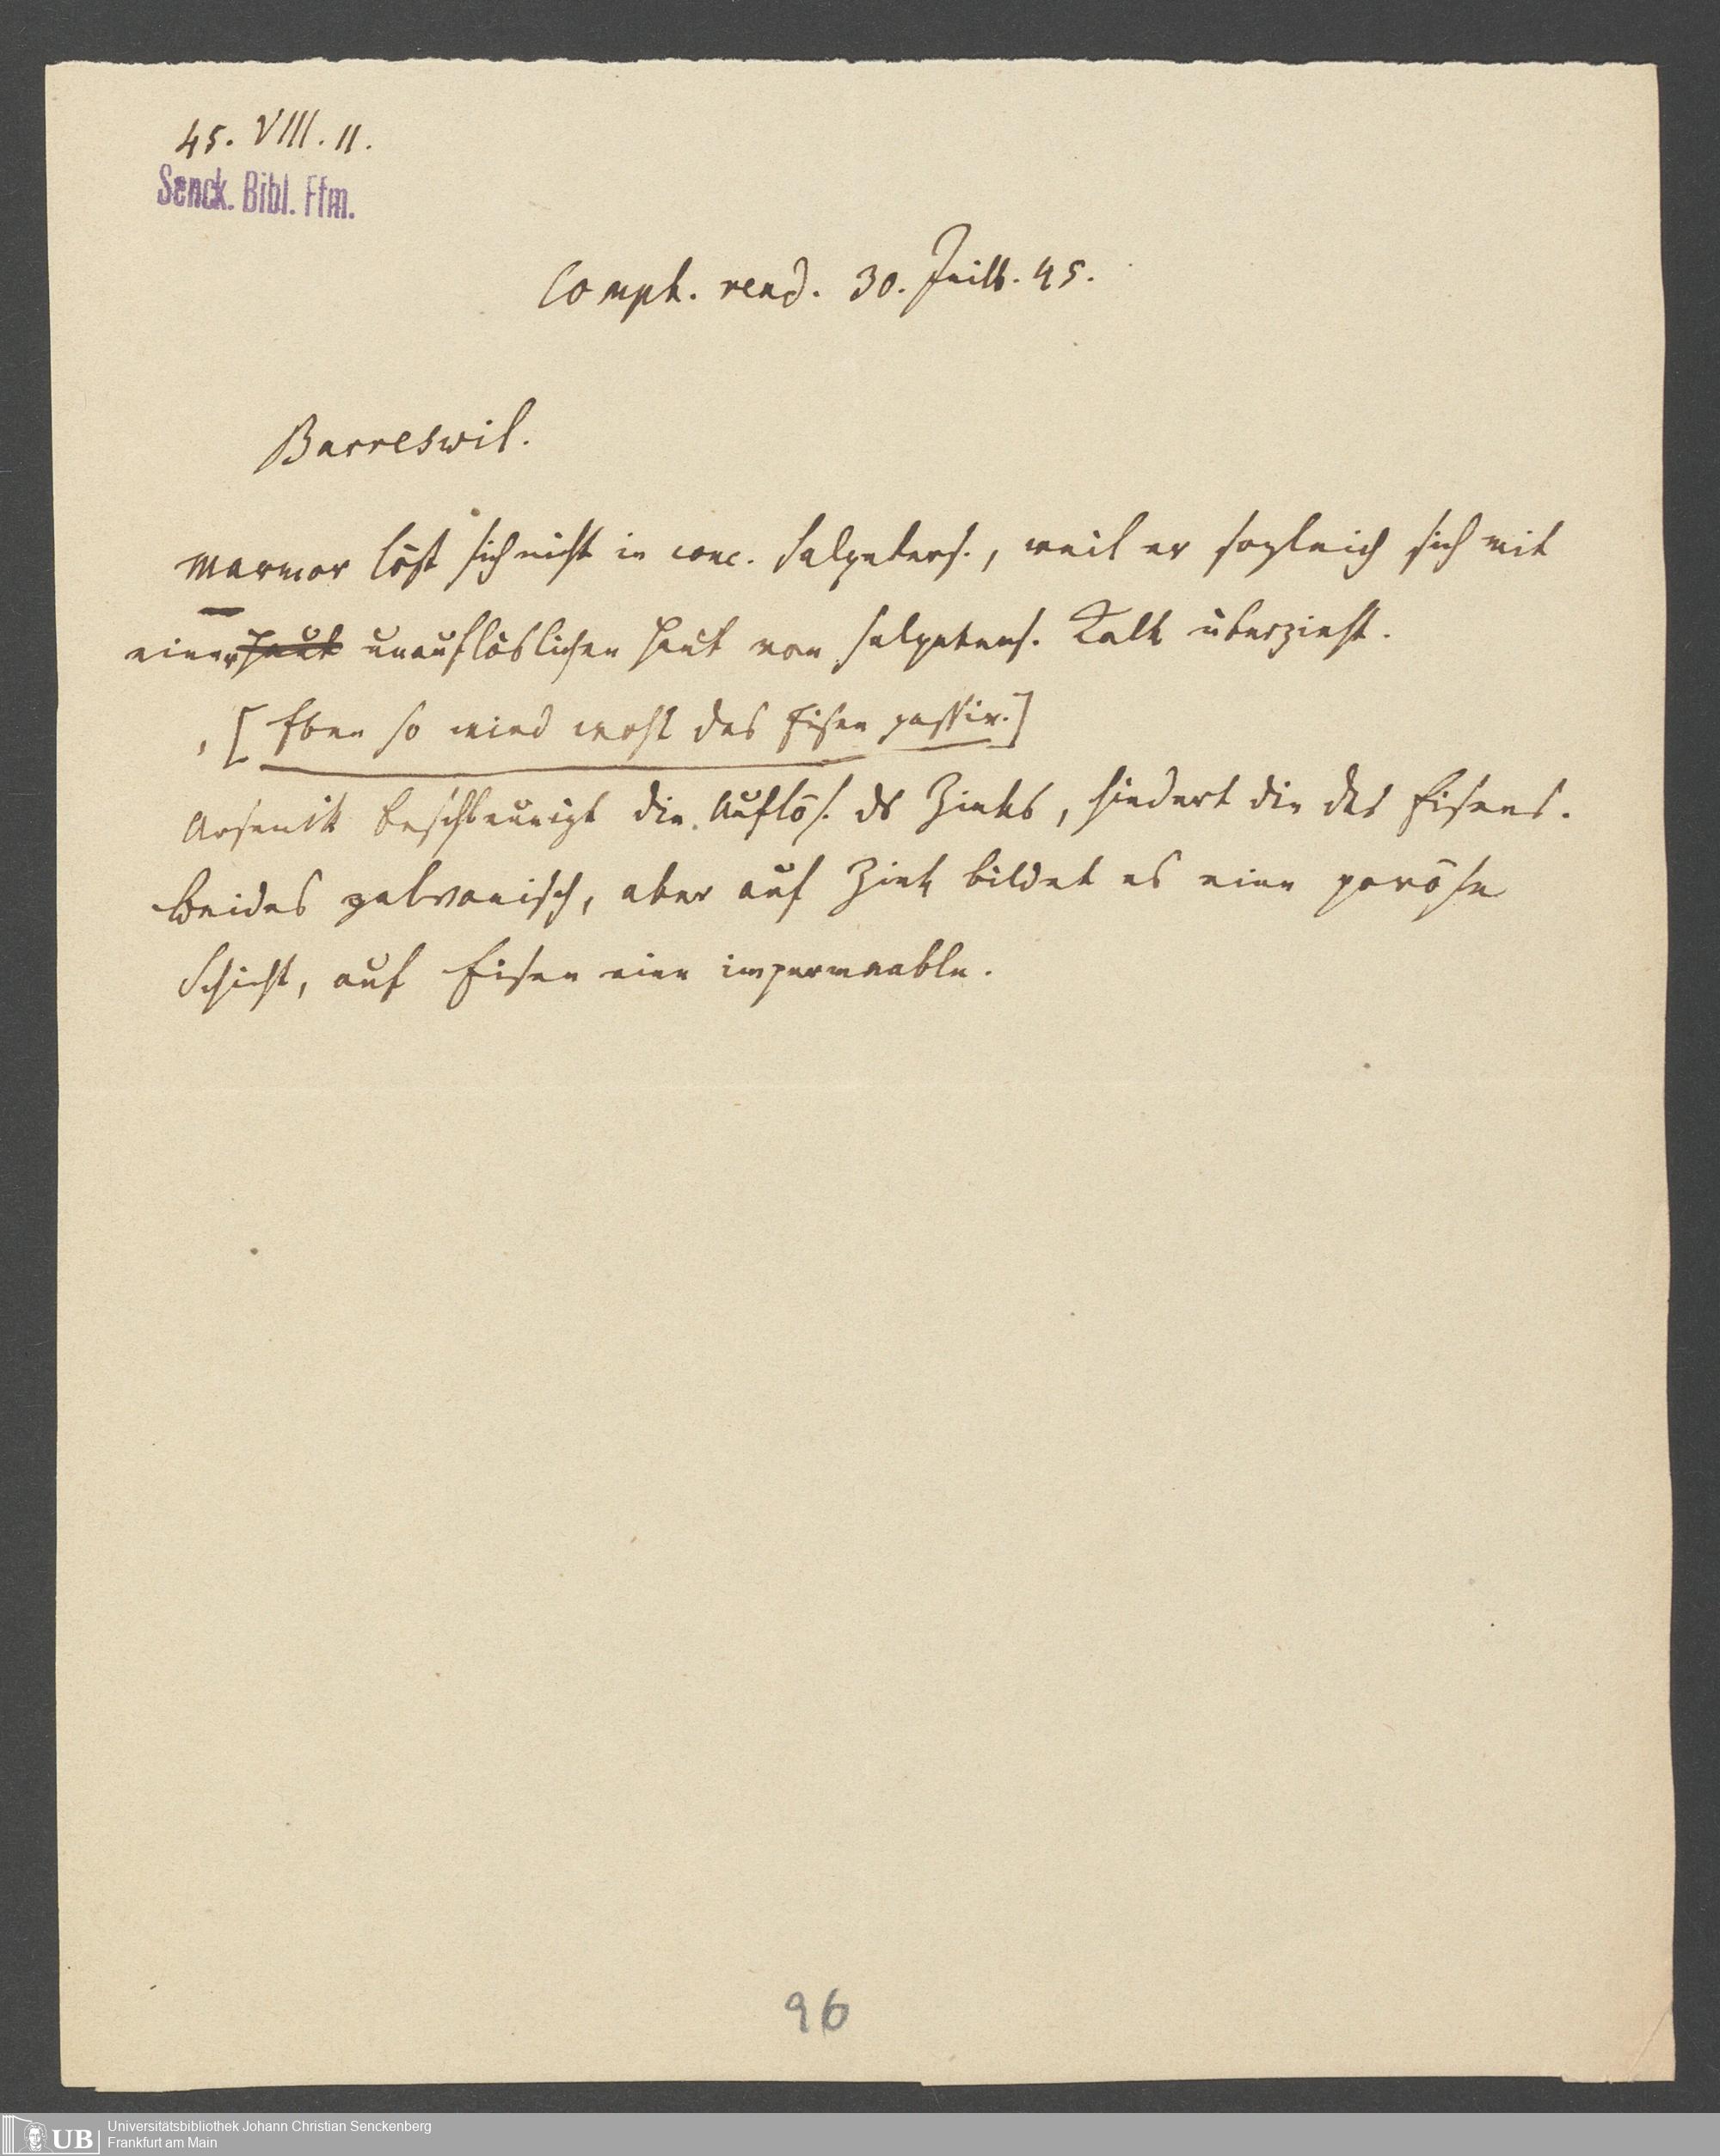 45. VIII. 11.
Senck. Bibl. Ffm.
Compt. rend. 30. Juill. 45.
Barreswil.
Marmor löst sich nicht in conc. Salpeters., weil er sogleich sich mit
einer Haut unauflöslichen Haut von salpeters. Kalk überzieht.
[Eben so wird wohl das Eisen passiv.]
Arsenik beschleunigt die Auflös. ds Zinks, hindert die des Eisens.
Beides galvanisch, aber auf Zink bildet es eine poröse
Schicht, auf Eisen eine impermeable.
96
UB
Universitätsbibliothek Johann Christian Senckenberg
Frankfurt am Main